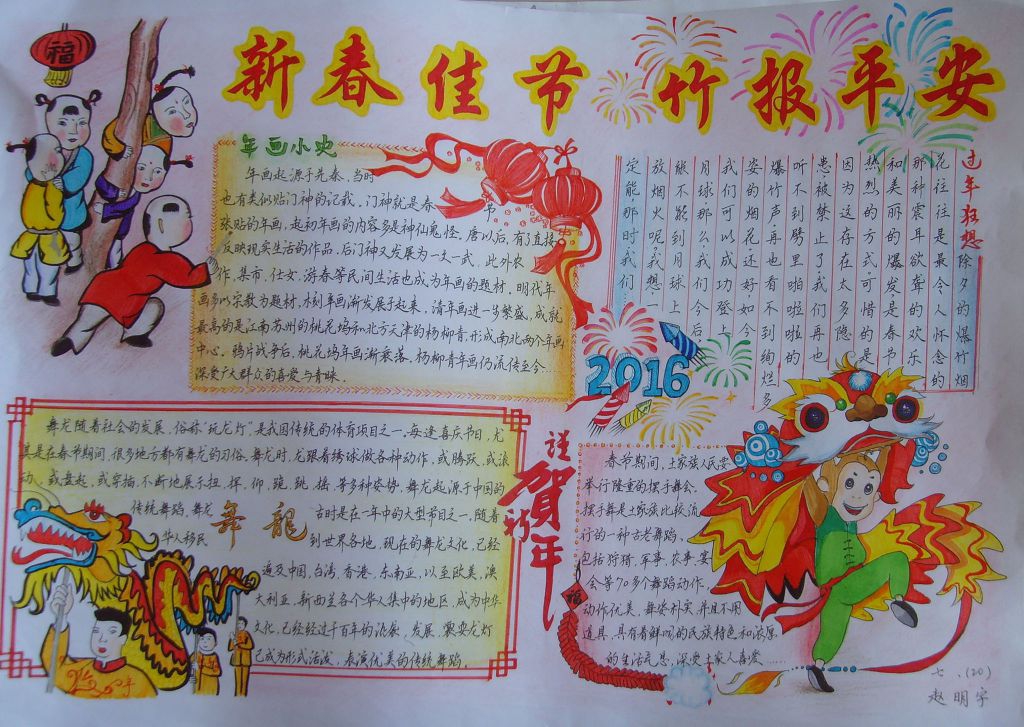 福
新春佳节 竹报平安
年画小史
年画起源于先秦,当时
也有类似贴门神的记载,门神就是春节
张贴的年画,起初年画的内容多是神仙鬼怪,唐以后,有了直接
反映现实生活的作品,后门神又发展为一文一武,此外农
作,集市,仕女,游春等民间生活也成为年画的题材,明代年
画多以宗教为题材,木刻年画渐发展于起来,清年画进一步繁盛,成就
最高的是江南苏州的桃花坞和北方天津的杨柳青,形成南北两个年画
中心。鸦片战争后,桃花坞年画渐衰落,杨柳青年画仍流传至今…
深受广大群众的喜爱与青睐。
过年狂想
除夕的爆竹烟
花往往是最令人怀念的
那种震耳欲聋的欢乐
和美丽的爆发是春节
热烈的方式可惜的是
因为这存在太多隐
患被禁止了我们再也
听不到劈里啪啦啦的
爆竹声再也看不到绚烂多
姿的烟花还好,如今
我们可以成功登上
月球那么,我们今后
能不能到月球上
放烟火呢?我想,一
定能,那时我们
2016
舞龙随着社会的发展,俗称"玩龙灯",是我国传统的体育项目之一。每逢喜庆节日,尤
其是在春节期间,很多地方都有舞龙的习俗。舞龙时,龙跟着绣球做各种动作,或腾跃,或滚
动,或盘起,或穿插,不断地展示扭,挥,仰,跪,跳,摇等多种姿势,舞龙起源于中国的
传统舞蹈,舞龙
舞龍
古时是在一年中的大型节日之一,随着
华人移民
到世界各地,现在的舞龙文化,已经
遍及中国,台湾,香港,东南亚,以至欧美,澳
大利亚,新西兰各个华人集中的地区,成为中华
文化,已经经过千百年的流泰,发展,
龙灯
已成为形式活泼,表演优美的传统舞蹈。
谨
賀
新年
福
春节期间,土家族人民要
举行隆重的摆手舞会。
摆手舞是土家族比较流
行的一种古老舞蹈,
包括狩猎,军事,农事,宴
会等70多个舞蹈动作,
动作优美,舞姿朴实,并且不用
道具,具有着鲜明的民族特色和浓厚
的生活气息,深受土家人喜爱……
七.(20)
赵明宇